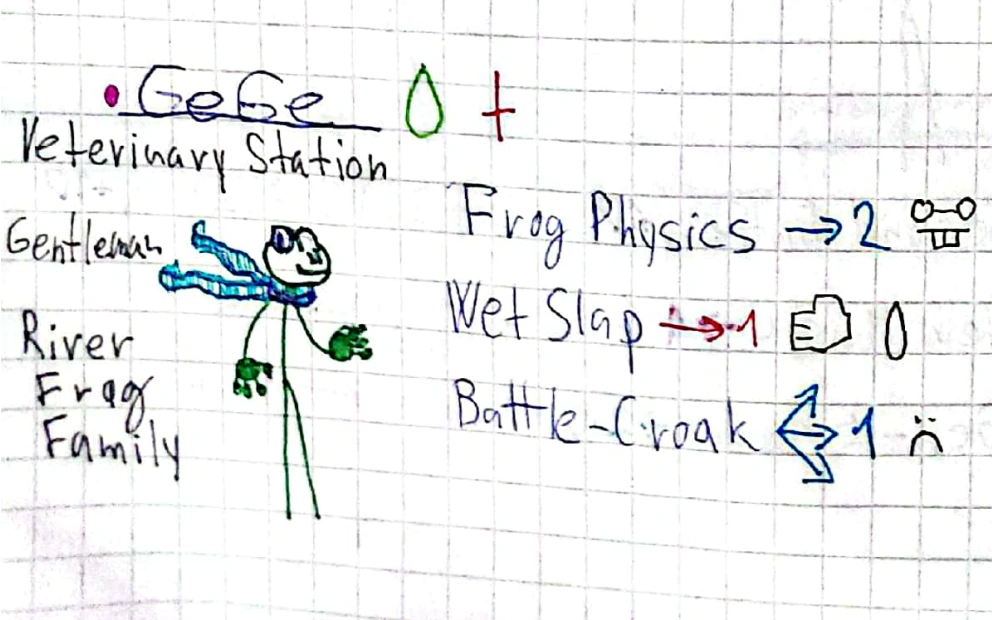 GeGe
Veterinary Station
Gentleman
River
Frog
Family
Frog Physics → 2
Wet Slap → 1
Battle-Croak 1